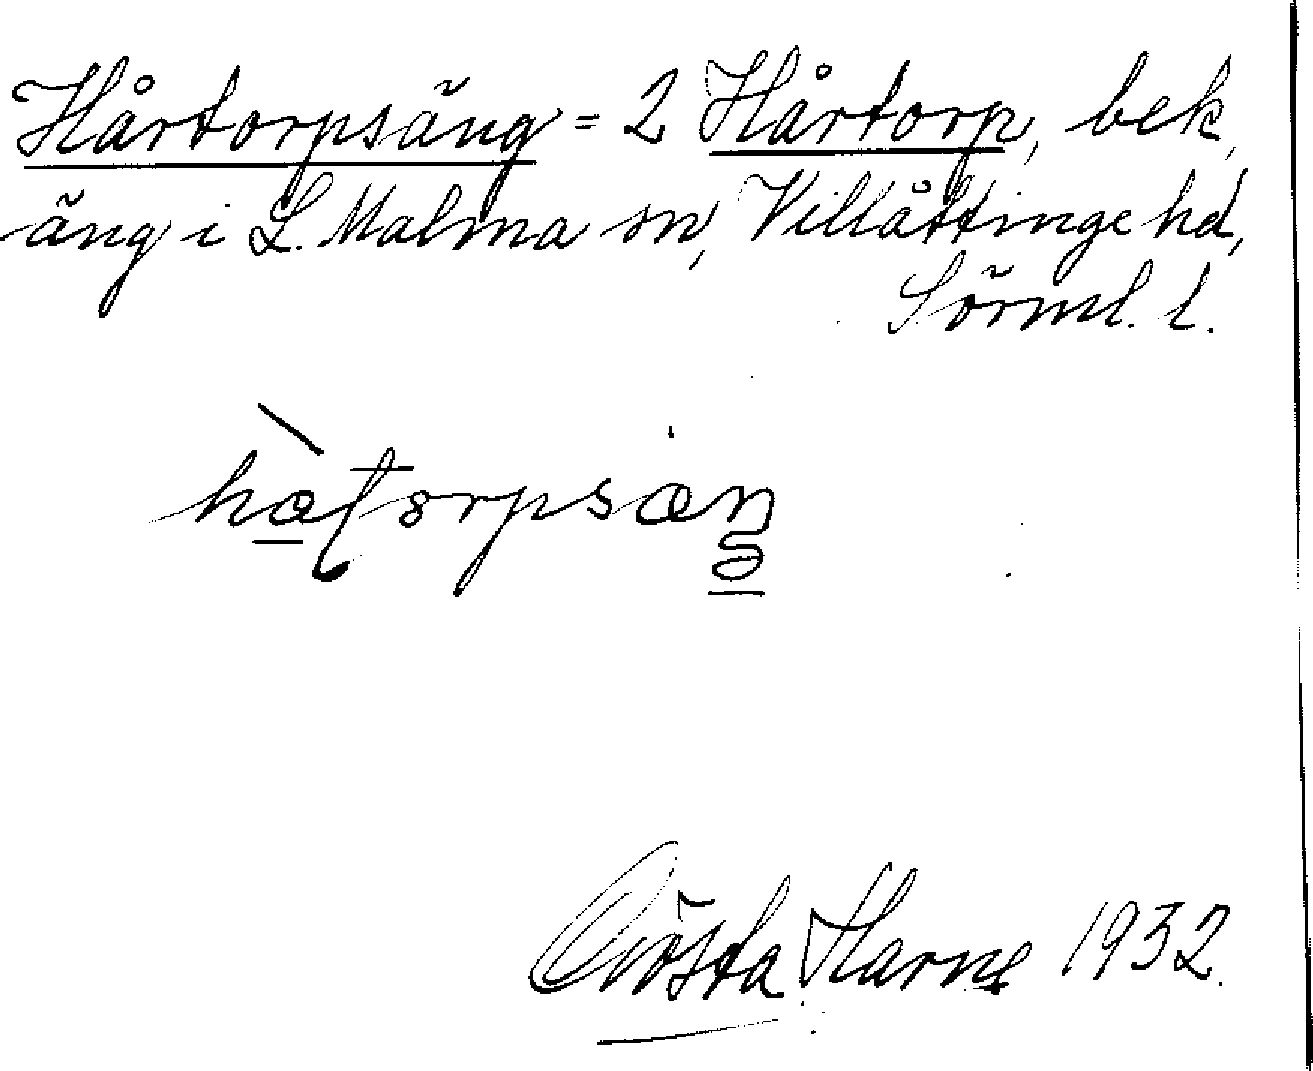 Hårtorpsäng = 2 Hårtorp, bek.
äng i L. Malma sn, Villåttinge hd,
Sörml. l.
Gösta Harne 1932.